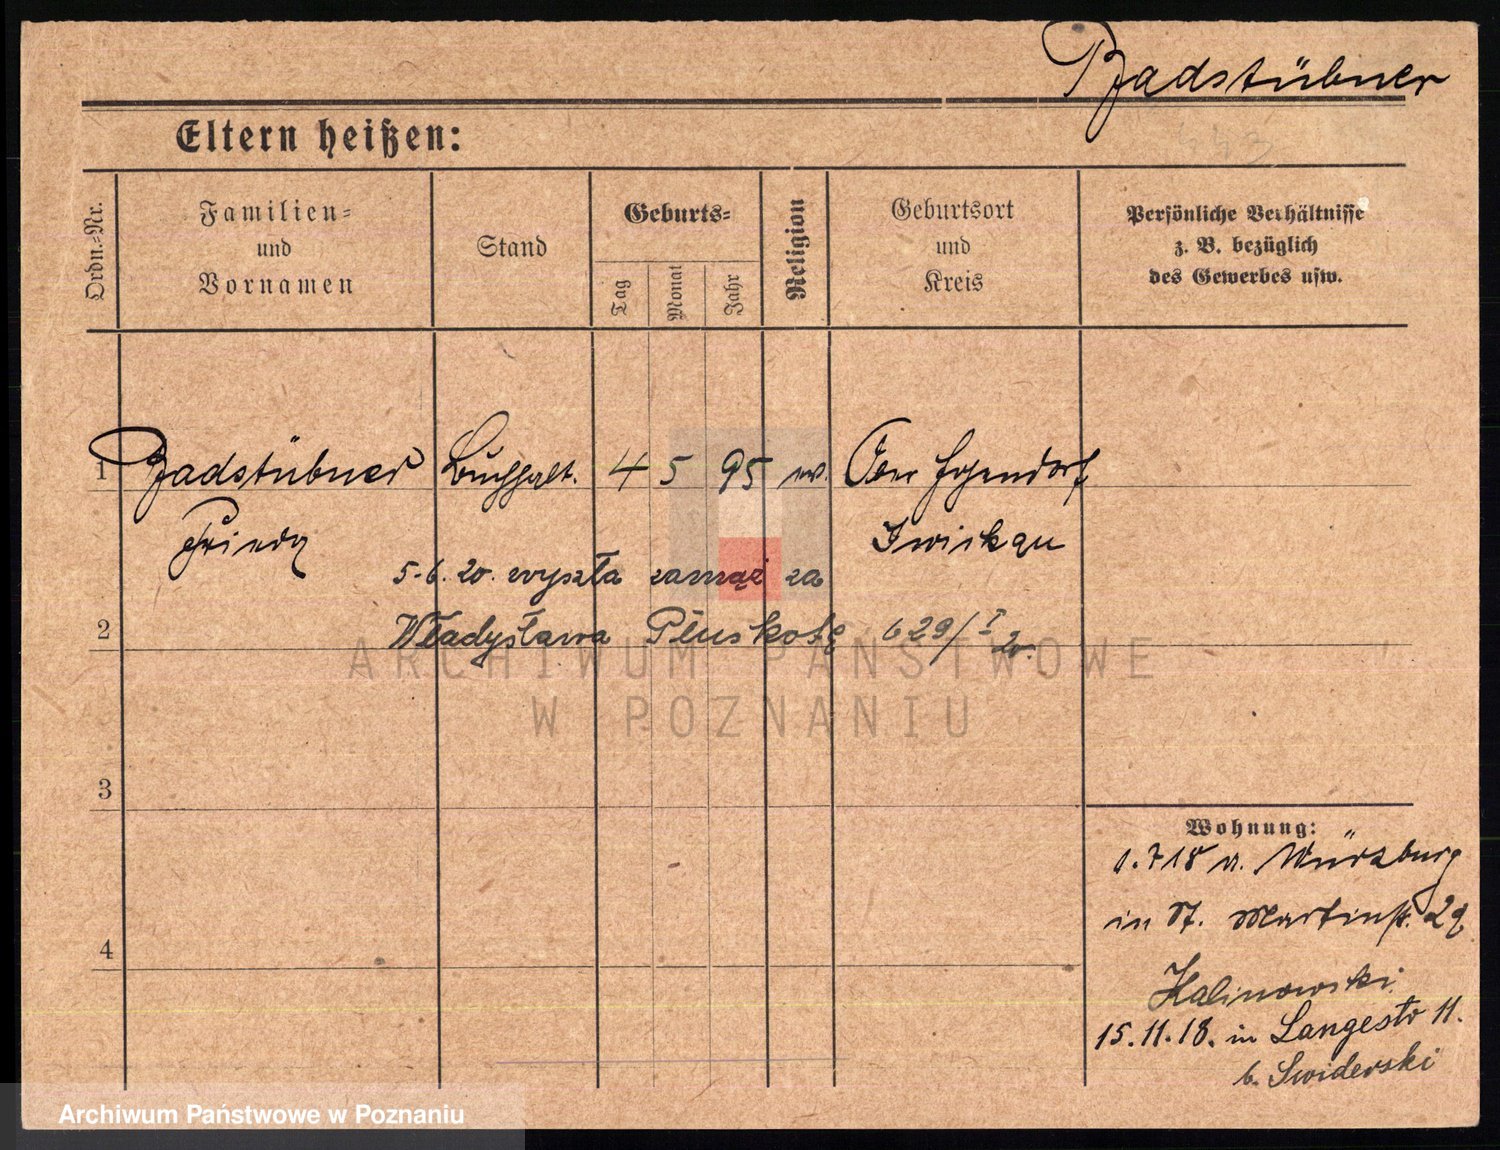 Badstübner
Eltern heißen:
443
Ordn.-Nr.
Familien-
und
Vornamen
Stand
Geburts-
Tag
Monat
Jahr
Religion
Geburtsort
und
Kreis
Persönliche Verhältnisse
z. B. bezüglich
des Gewerbes usw.
1 Badstübner Buchhalt. 4 5 95 ev.
Zwickau
5.6.20. wyszła zamąż za
2 Władysława Pluskotę 629/I 20.
3
4
Wohnung:
1.7 18 v. Würzburg
in St. Martinstr. 29
Kalinowski
15.11.18. in Langestr 11.
b. Swiderski
ARCHIWUM PAŃSTWOWE
W POZNANIU
Archiwum Państwowe w Poznaniu